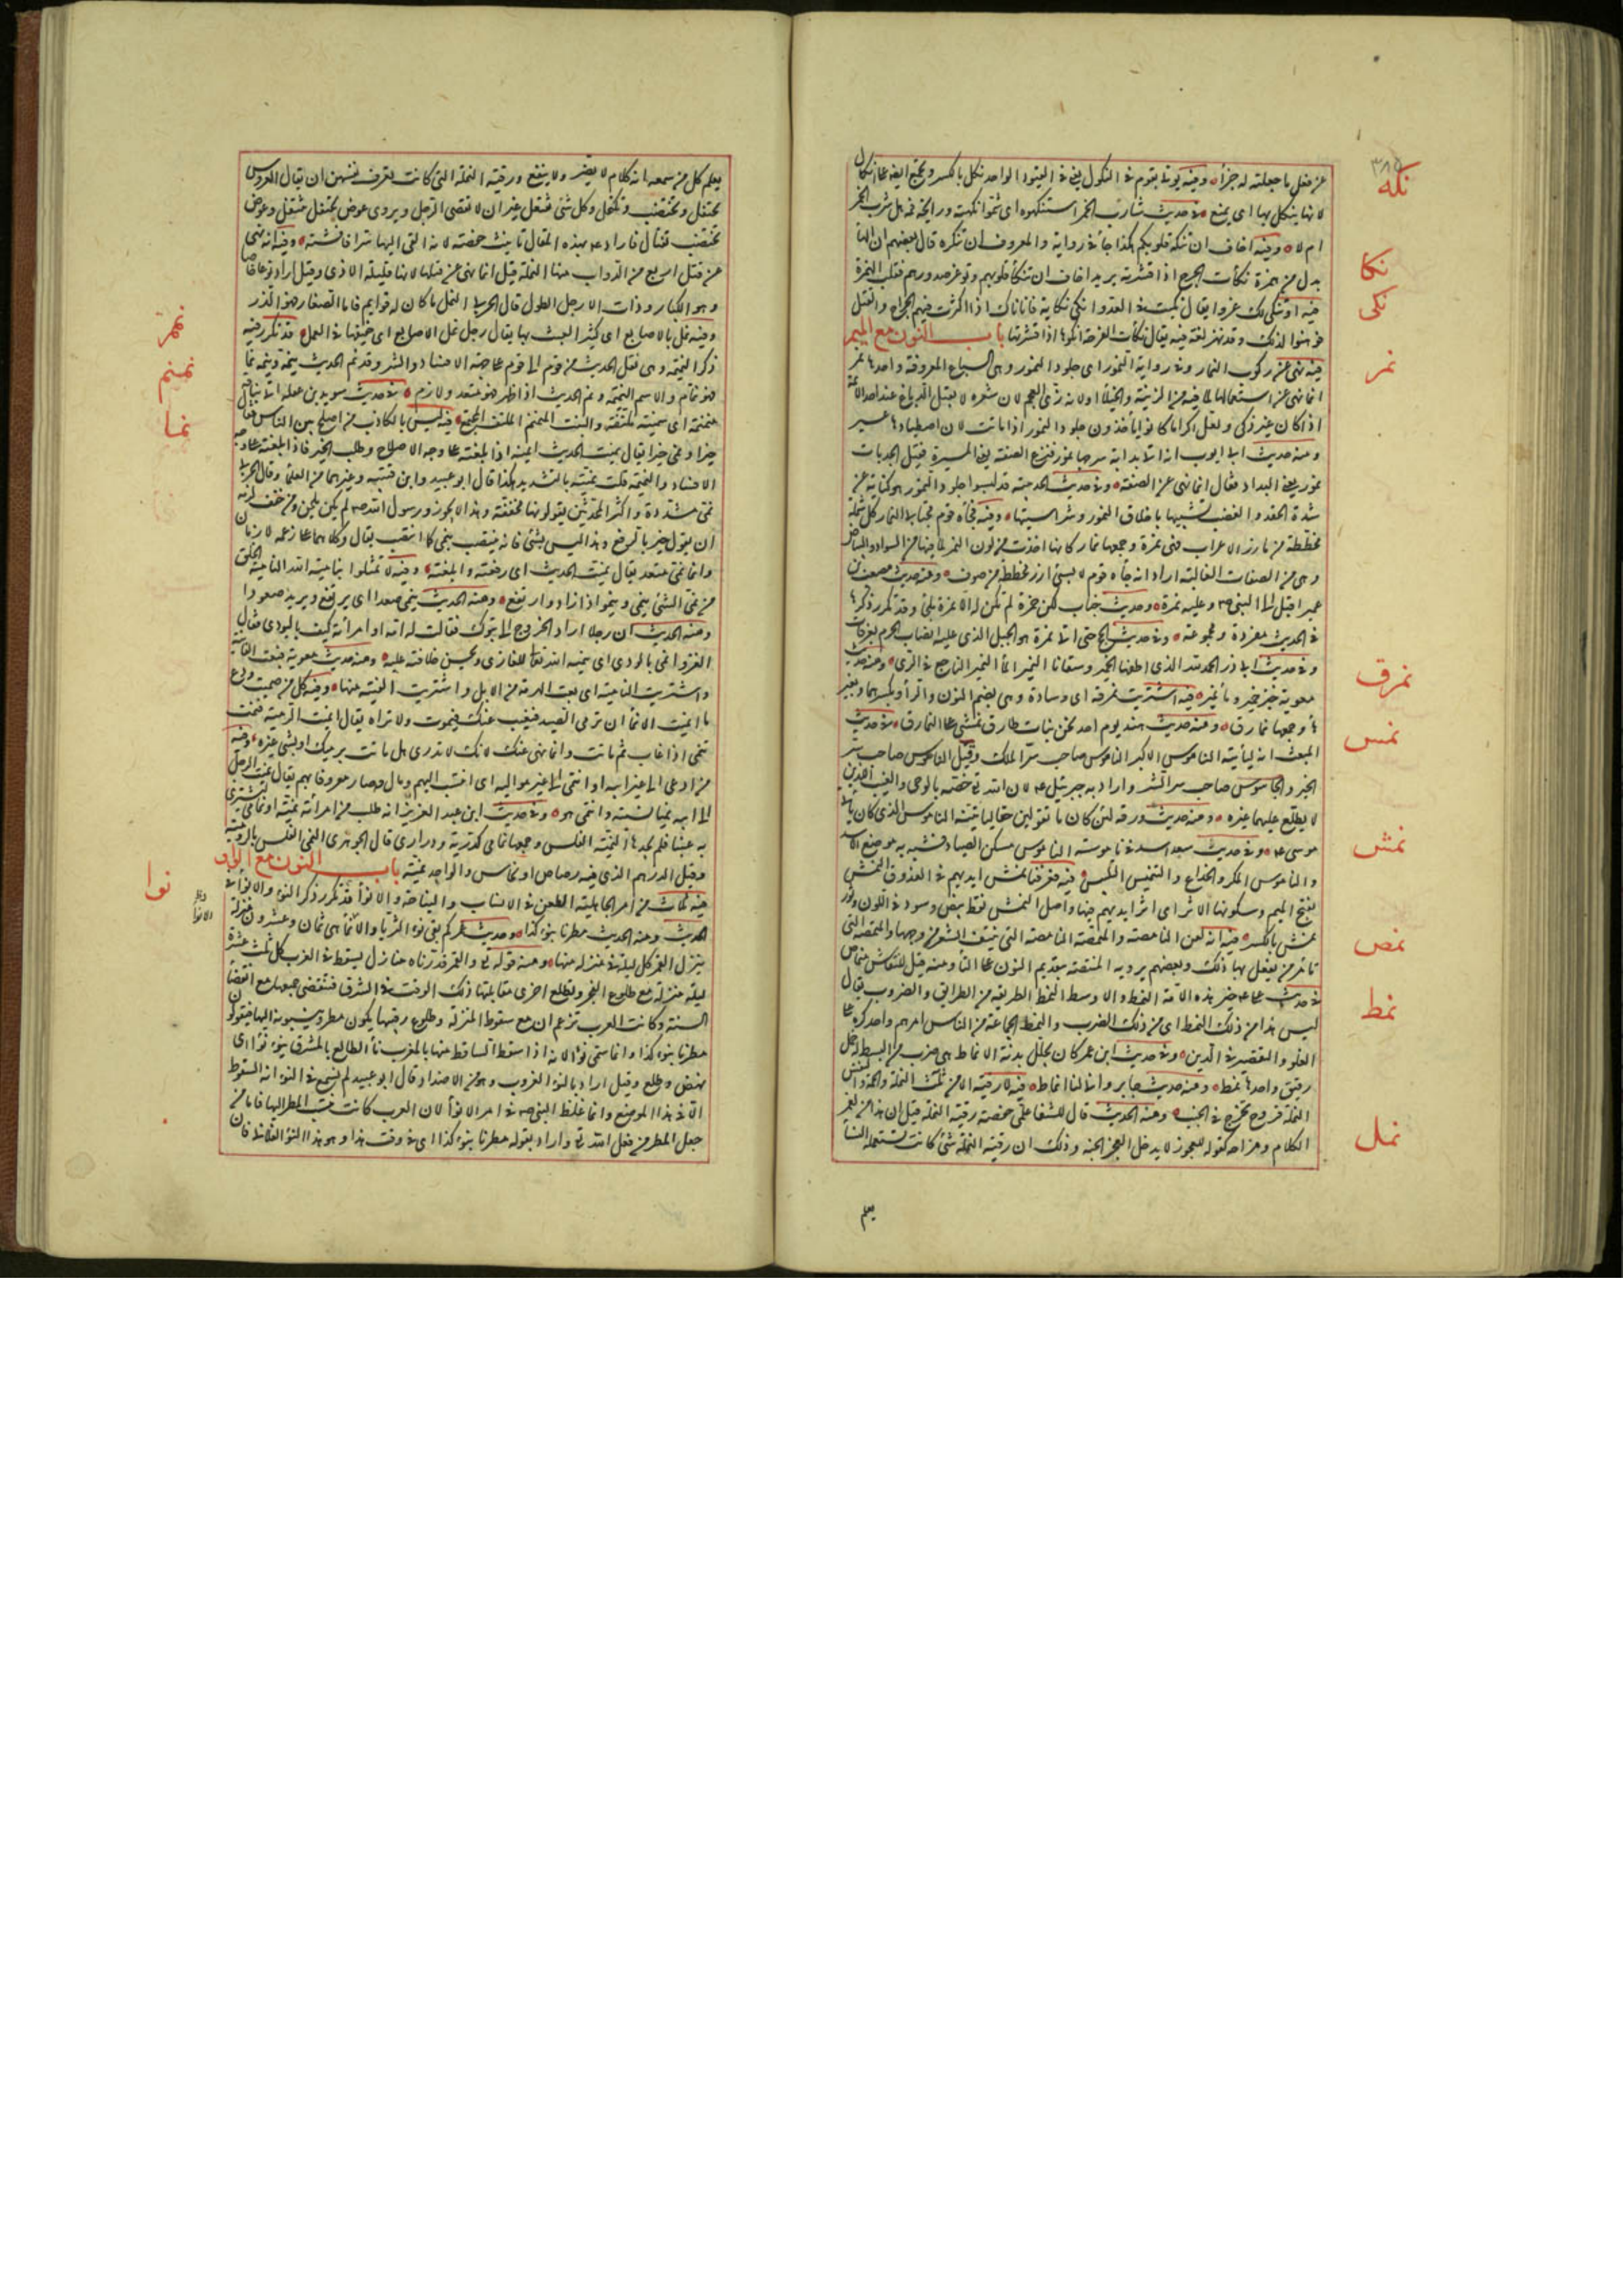 ٣٨٥
نكه
نكا
نكى
نمر
نمرق
نمس
نمش
نمص
نمط
نمل
عن فعل ما جعلته له جزاء وفيه يؤتى بقوم فى النكول يعنى فى القيود الواحد نكل بالكسر ويجمع ايضا على انكال
لانها ينكل بها اى يمنع فى حديث شارب الخمر استنكهوه اى شموا نكهته ورايحة فمه هل شرب الخمر
ام لا وفيه اخاف ان تنكه قلوبكم هكذا جاء فى رواية والمعروف ان تنكره قال بعضهم ان الهاء
بدل من همزة نكأت الجرح اذا قشرته يريد اخاف ان تنكأ قلوبهم وتوغر صدورهم فقلب الهمزة
فيه او تنكى لك عدوا يقال نكيت فى العدو انكى نكاية فانا ناك اذا اكثرت فيهم الجراح والقتل
فوهنوا لذلك وقد تهمز لغة فيه يقال نكأت القرحة انكؤها اذا قشرتها باب النون مع الميم
فيه نهى عن ركوب النمار وفى رواية النمور اى جلود النمور وهى السباع المعروفة واحدها نمر
انما نهى عن استعمالها لما فيه من الزينة والخيلاء ولانه زى العجم لان شعره لا يقبل الدباغ عند احد الائمة
اذا كان غير ذكى ولعل اكثر ما كانوا يأخذون جلود النمور اذا ماتت لان اصطيادها عسير
ومنه حديث ابى ايوب انه اتى بدابة سرجها نمور فنزع الصفة يعنى الميثرة فقيل الجديات
نمور يعنى البداد فقال انما نهى عن الصفة وفى حديث الحديبية قد لبسوا جلود النمور هو كناية عن
شدة الحقد والغضب تشبيها باخلاق النمور وشراستها وفيه فجاءه قوم مجتابى النمار كل شملة
مخططة من مآزر الاعراب فهى نمرة وجمعها نمار كانها اخذت من لون النمر لما فيها من السواد والبياض
وهى من الصفات الغالبة اراد انه جاءه قوم لابسى ازر مخططة من صوف ومنه حديث مصعب بن
عمير اقبل الى النبى صم وعليه نمرة وحديث خباب لكن حمزة لم تكن له الا نمرة بلى وقد تكرر ذكرها
فى الحديث مفردة ومجموعة وفى حديث الحج حتى اتى نمرة هو الجبل الذى عليه انصاب الحرم بعرفات
وفى حديث ابى ذر الحمد لله الذى اطعمنا الخمير وسقانا النمير الماء النمير الناجع فى الرى ومنه حديث
معوية خبز خمير وماء نمير فيه اشتريت نمرقة اى وسادة وهى بضم النون والراء وبكسرهما وبغير
هاء وجمعها نمارق ومنه حديث هند يوم احد نحن بنات طارق نمشى على النمارق فى حديث
المبعث انه ليأتيه الناموس الاكبر الناموس صاحب سر الملك وقيل الناموس صاحب سر
الخير والجاسوس صاحب سر الشر واراد به جبرئيل عم لان الله تعالى خصه بالوحى والغيب اللذين
لا يطلع عليهما غيره ومنه حديث ورقة لئن كان ما تقولين حقا ليأتيه الناموس الذى كان يأتى
موسى عم وفى حديث سعد اسد فى ناموسته الناموس مسكن الصياد فشبه به موضع الاسد
والناموس المكر والخداع والتنميس التلبيس فيه فعرفنا نمش ايديهم فى العذوق النمش
بفتح الميم وسكونها الاثر اى اثر ايديهم فيها واصل النمش نقط بيض وسود فى اللون وثور
نمش بالكسر فيه انه لعن النامصة والمتنمصة النامصة التى تنتف الشعر من وجهها والمتنمصة التى
تأمر من يفعل بها ذلك وبعضهم يرويه المنتمصة بتقديم النون على التاء ومنه قيل للمنقاش منماص
فى حديث على عم خير هذه الامة النمط الاوسط النمط الطريقة من الطرائق والضروب يقال
ليس هذا من ذلك النمط اى من ذلك الضرب والنمط الجماعة من الناس امرهم واحد كره على
الغلو والتقصير فى الدين وفى حديث ابن عمر كان يجلل بدنه الانماط هى ضرب من البسط له خمل
رقيق واحدها نمط ومنه حديث جابر وانى لنا انماط فيه لا رقية الا من ثلث النملة والحمة والنفس
النملة قروح تخرج فى الجنب ومنه الحديث قال للشفاء علمى حفصة رقية النملة قيل ان هذا من لغز
الكلام ومزاحه كقوله للعجوز لا يدخل العجز الجنة وذلك ان رقية النملة شئ كانت تستعمله النساء
يعلم
يعلم كل من سمعه انه كلام لا يضر ولا ينفع ورقية النملة التى كانت تعرف بينهن ان يقال العروس
تحتفل وتختضب وتكتحل وكل شئ تفتعل غير ان لا تعصى الرجل ويروى عوض تحتفل تنتعل وعوض
تختضب تقتال فاراد عم بهذه المقال تأنيب حفصة لانه القى اليها سرا فافشته وفيه انه نهى
عن قتل اربع من الدواب منها النملة قيل انما نهى عن قتلها لانها قليلة الاذى وقيل اراد نوعا خاصا
وهو الكبار ذوات الارجل الطوال قال الحربى النمل ما كان له قوايم فاما الصغار فهو الذر
وفيه نمل بالاصابع اى كثير العبث بها يقال رجل نمل الاصابع اى خفيفها فى العمل قد تكرر فيه
ذكر النميمة وهى نقل الحديث من قوم الى قوم على جهة الافساد والشر وقد نم الحديث ينمه وينمه نما
فهو نمام والاسم النميمة ونم الحديث اذا ظهر فهو متعد ولازم فى حديث سويد بن غفلة اتى بناقة
منمنمة اى سمينة ملتفة والنبت المنمنم الملتف المجتمع فيه ليس بالكاذب من اصلح بين الناس فقال
خيرا او نمى خيرا يقال نميت الحديث انميه اذا بلغته على وجه الاصلاح وطلب الخير فاذا بلغته على وجه
الافساد والنميمة قلت نميته بالتشديد هكذا قال ابو عبيد وابن قتيبة وغيرهما من العلماء وقال الحربى
نمى مشددة واكثر المحدثين يقولونها مخففة وهذا لا يجوز ورسول الله صم لم يكن يلحن ومن خفف لزمه
ان يقول خير بالرفع وهذا ليس بشئ فانه ينتصب بنمى كما انتصب بقال وكلاهما على زعمه لازمان
وانما نمى متعد يقال نميت الحديث اى رفعته وابلغته وفيه لا تمثلوا بنامية الله النامية الخلق
من نمى الشئ ينمى وينمو اذا زاد وارتفع ومنه الحديث ينمى صعدا اى يرتفع ويزيد صعودا
ومنه الحديث ان رجلا اراد الخروج الى تبوك فقالت له امه او امرأته كيف بالودى فقال
الغزو انمى بالودى اى ينميه الله تعالى للغازى ويحسن خلافته عليه ومنه حديث معوية فبعت الفانية
واشتريت النامية اى بعت الهرمة من الابل واشتريت الفتية منها وفيه كل ما اصميت ودع
ما انميت الانماء ان ترمى الصيد فيغيب عنك فيموت ولا تراه يقال انميت الرمية فنمت
تنمى اذا غابت ثم ماتت وانما نهى عنها لانك لا تدرى هل ماتت برميك او بشئ غيره وفيه
من ادعى الى غير ابيه او انتمى الى غير مواليه اى انتسب اليهم ومال وصار معروفا بهم يقال نميت الرجل
الى ابيه نميا نسبته وانتمى هو وفى حديث ابن عبد العزيز انه طلب من امرأته نمية او نمامى ليشترى
به عنبا فلم يجدها النمية الفلس وجمعها نمامى كذرية وذرارى قال الجوهرى النمى الفلس بالرومية
وقيل الدرهم الذى فيه رصاص او نحاس والواحدة نمية باب النون مع الواو
فيه ثلاث من امر الجاهلية الطعن فى الانساب والنياحة والانواء قد تكرر ذكر النوء والانواء فى
الحديث ومنه الحديث مطرنا بنوء كذا وحديث عمر كم بقى من نوء الثريا والانواء هى ثمان وعشرون منزلة
ينزل القمر كل ليلة فى منزلة منها ومنه قوله تعالى والقمر قدرناه منازل يسقط فى الغرب كل ثلث عشرة
ليلة منزلة مع طلوع الفجر وتطلع اخرى مقابلتها ذلك الوقت فى الشرق فتنقضى جميعها مع انقضاء
السنة وكانت العرب تزعم ان مع سقوط المنزلة وطلوع رقيبها يكون مطر وينسبونه اليها فيقولون
مطرنا بنوء كذا وانما سمى نوءا لانه اذا سقط الساقط منها بالمغرب ناء الطالع بالمشرق ينوء نوءا اى
نهض وطلع وقيل اراد بالنوء الغروب وهو من الاضداد وقال ابو عبيد لم يسمع فى النوء انه السقوط
الا فى هذا الموضع وانما غلظ النبى صم فى امر الانواء لان العرب كانت تنسب المطر اليها فاما من
جعل المطر من فعل الله تعالى واراد بقوله مطرنا بنوء كذا اى فى وقت هذا وهو هذا النوء الفلانى فان
نمنم
نما
نوا
والانواء